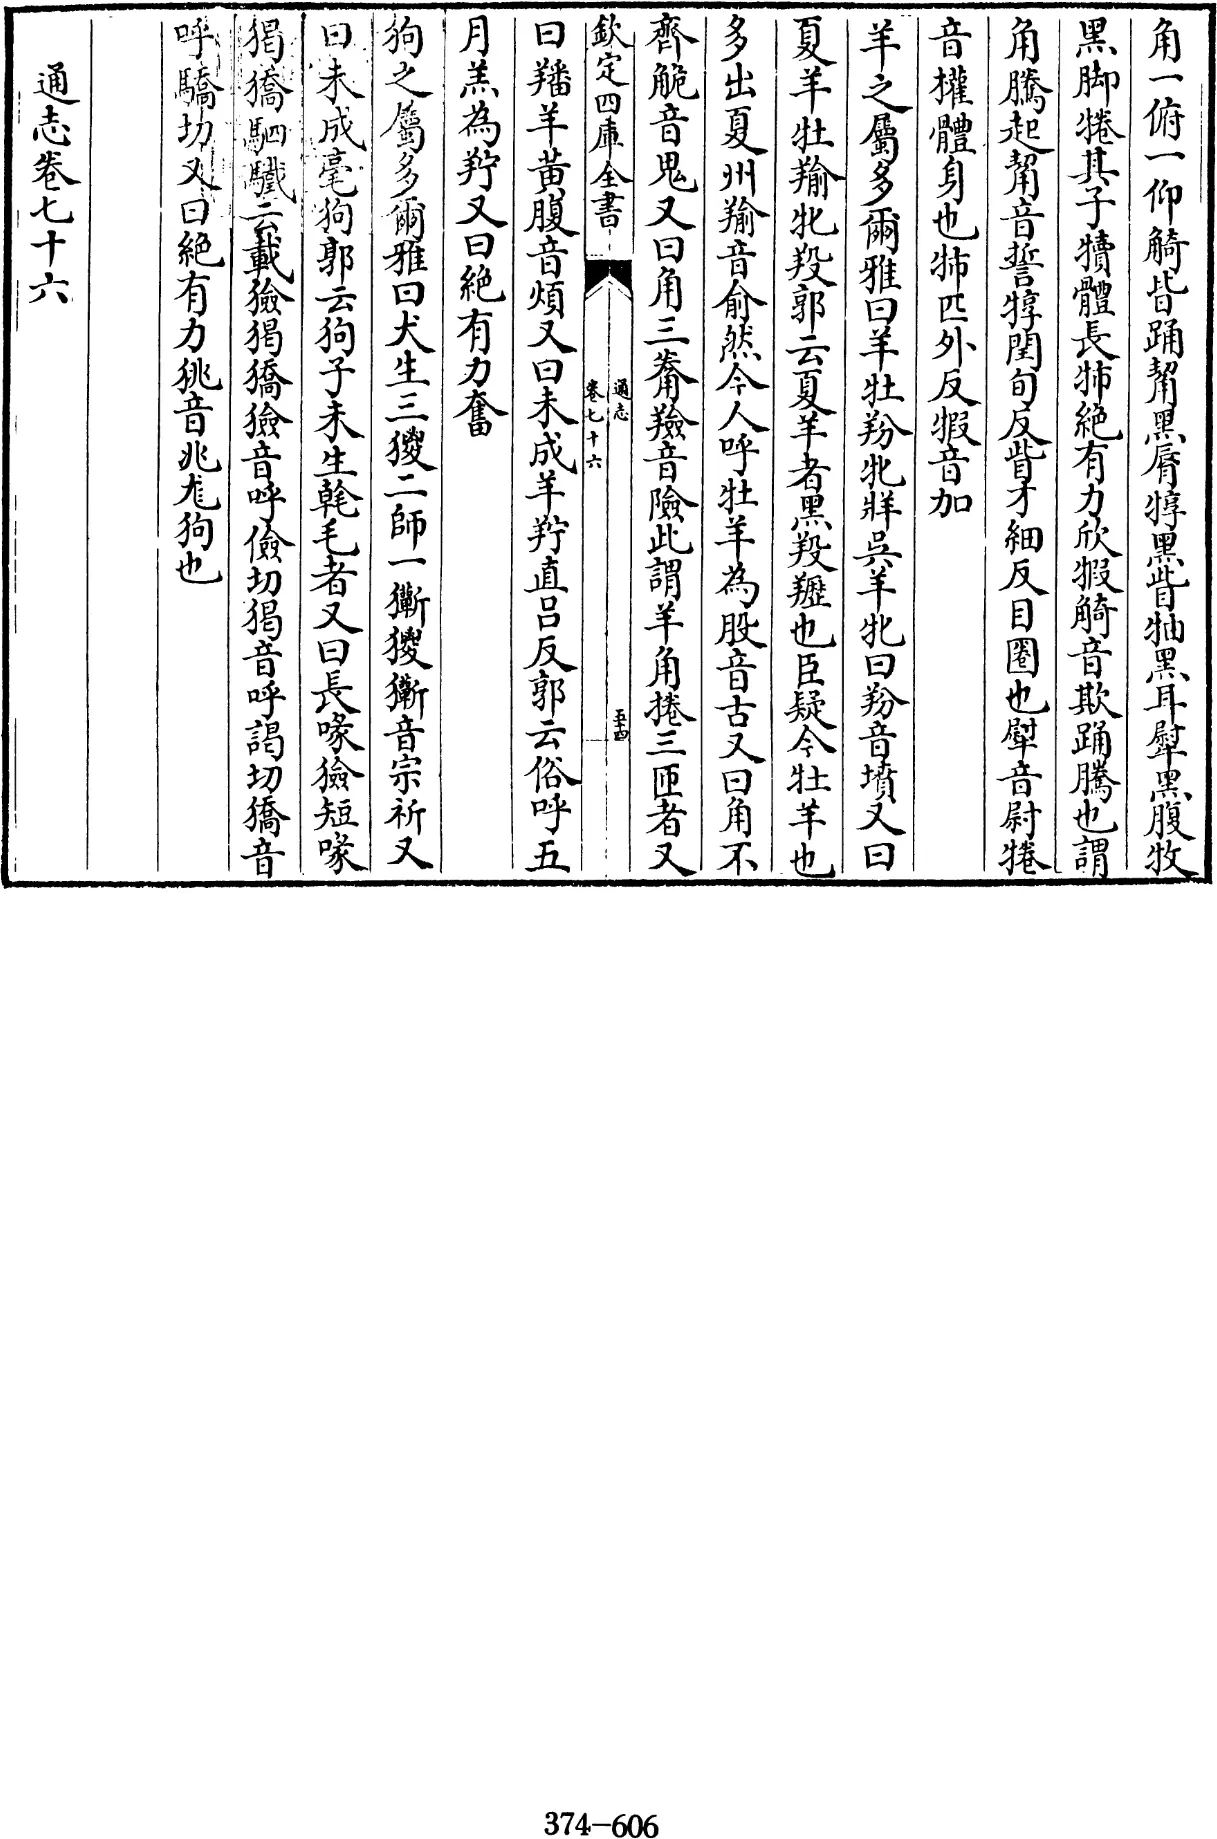 角一俯一仰觭皆踊觢黑脣犉黑眥牰黑耳犚黑腹牧
黑脚犈其子犢體長㸬絶有力欣犌觭音欺踊騰也謂
角騰起觢音誓犉閏旬反眥才細反目圏也犚音尉犈
音權體身也㸬匹外反犌音加
羊之屬多爾雅曰羊牡羒牝牂吴羊牝曰羒音墳又曰
夏羊牡羭牝羖郭云夏羊者黑羖䍽也臣疑今牡羊也
多出夏州羭音俞然今人呼牡羊為股音古又曰角不
齊觤音鬼又曰角三觠羷音險此謂羊角捲三匝者又
欽定四庫全書
通志
卷七十六
五十四
曰羳羊黄腹音煩又曰未成羊羜直吕反郭云俗呼五
月羔為羜又曰絶有力奮
狗之屬多爾雅曰犬生三猣二師一玂猣玂音宗祈又
曰未成毫狗郭云狗子未生䩭毛者又曰長喙獫短喙
猲獢駟驖云載獫猲獢獫音呼儉切猲音呼謁切獢音
呼驕切又曰絶有力狣音兆尨狗也
通志卷七十六
374-606